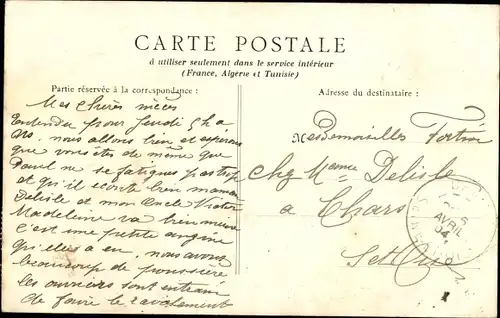 CARTE POSTALE
à utiliser seulement dans le service intérieur
(France, Algérie et Tunisie)
Partie réservée à la correspondance :
Adresse du destinataire :
Mes chères nièces
Entendu pour Jeudi 5h a
nous allons bien et espérons
que vous êtes de même que
ne se fatigue pas trop
et qu'il écoute bien maman
Delisle et mon Oncle
Madeleine va bien mieux
c'est une petite angine
qu'elle a eu, nous avons
beaucoup de poussière
les ouvriers sont entrain
de faire le ravalement
Mesdemoiselles
chez Mame Delisle
à Chars
Set Oise
AVRIL
04